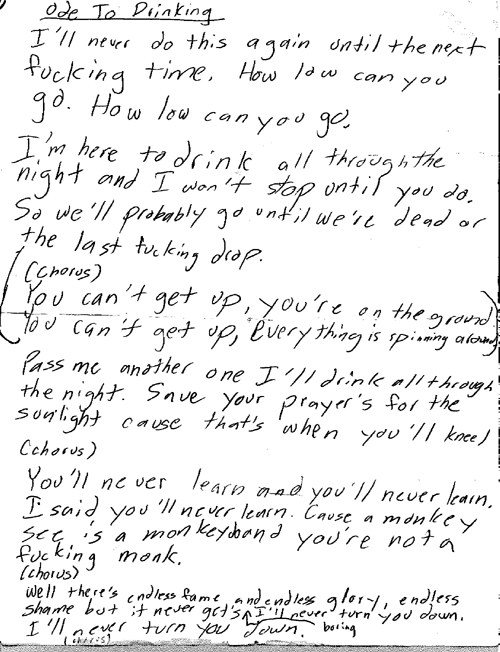 Ode To Drinking
I'll never do this again until the next
fucking time. How low can you
go. How low can you go.
I'm here to drink all through the
night and I won't stop until you do.
So we'll probably go until we're dead or
the last fucking drop.
(Chorus)
You can't get up, you're on the ground
You can't get up, Everything is spinning around
Pass me another one I'll drink all through
the night. Save your prayer's for the
sunlight cause that's when you'll kneel
(chorus)
You'll never learn and you'll never learn.
I said you'll never learn. Cause a monkey
see is a monkey do and you're not a
fucking monk.
(chorus)
Well there's endless fame, and endless glory, endless
shame but it never get's I'll never turn you down.
I'll never turn you down. boring
(chorus)